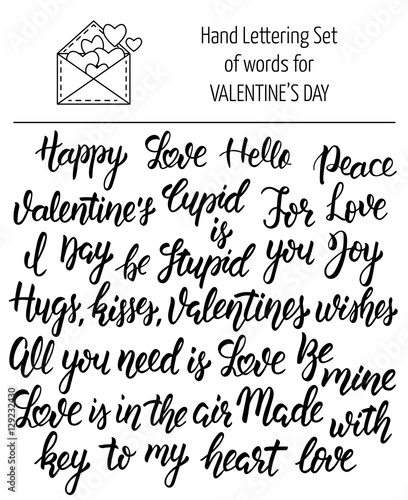 Hand Lettering Set
of words for
VALENTINE'S DAY
Happy Love Hello Peace
Valentine's Cupid For Love
is
I Day be Stupid you Joy
Hugs, kisses, Valentines wishes
All you need is Love Be
mine
Love is in the air Made with
key to my heart love
129232430
Adobe Stock